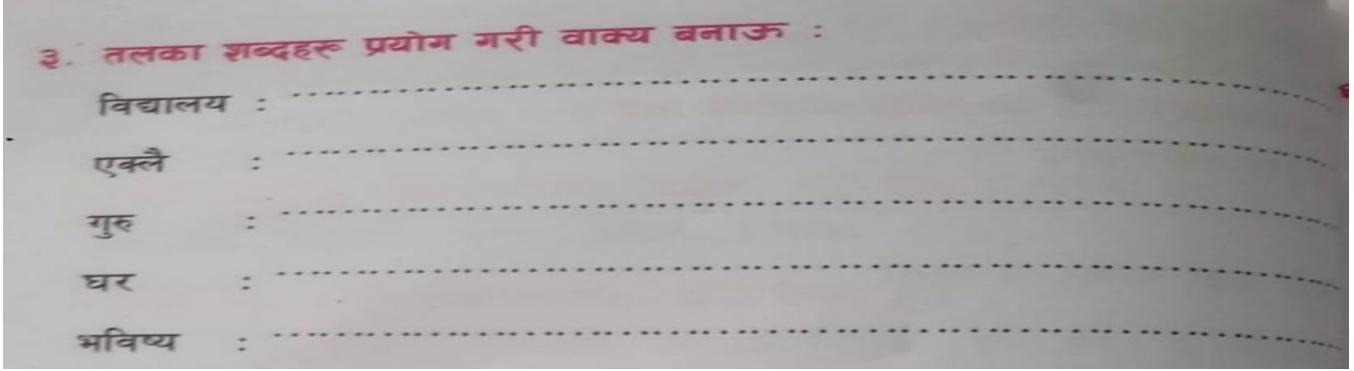 ३. तलका शब्दहरू प्रयोग गरी वाक्य बनाऊ :
विद्यालय : ........................................................................
एक्लै : ........................................................................
गुरु : ........................................................................
घर : ........................................................................
भविष्य : ........................................................................